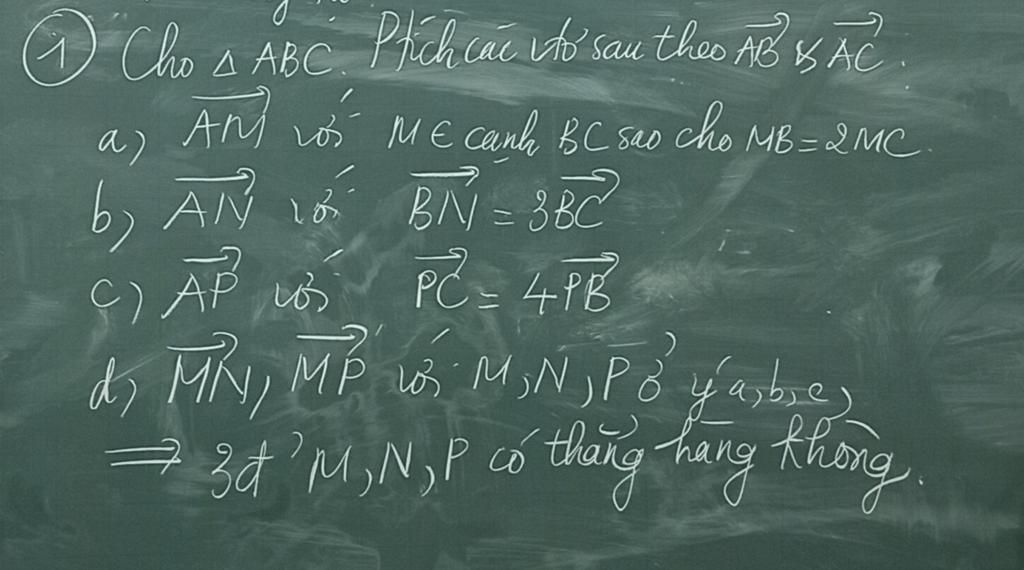 ① Cho △ ABC. Ptích các vtơ sau theo AB⃗ & AC⃗.
a) AM⃗ với M ∈ cạnh BC sao cho MB = 2MC.
b) AN⃗ với BN⃗ = 3BC⃗
c) AP⃗ với PC⃗ = 4PB⃗
d) MN⃗, MP⃗ với M, N, P ở ý a, b, c,
⇒ 3đ' M, N, P có thẳng hàng không.